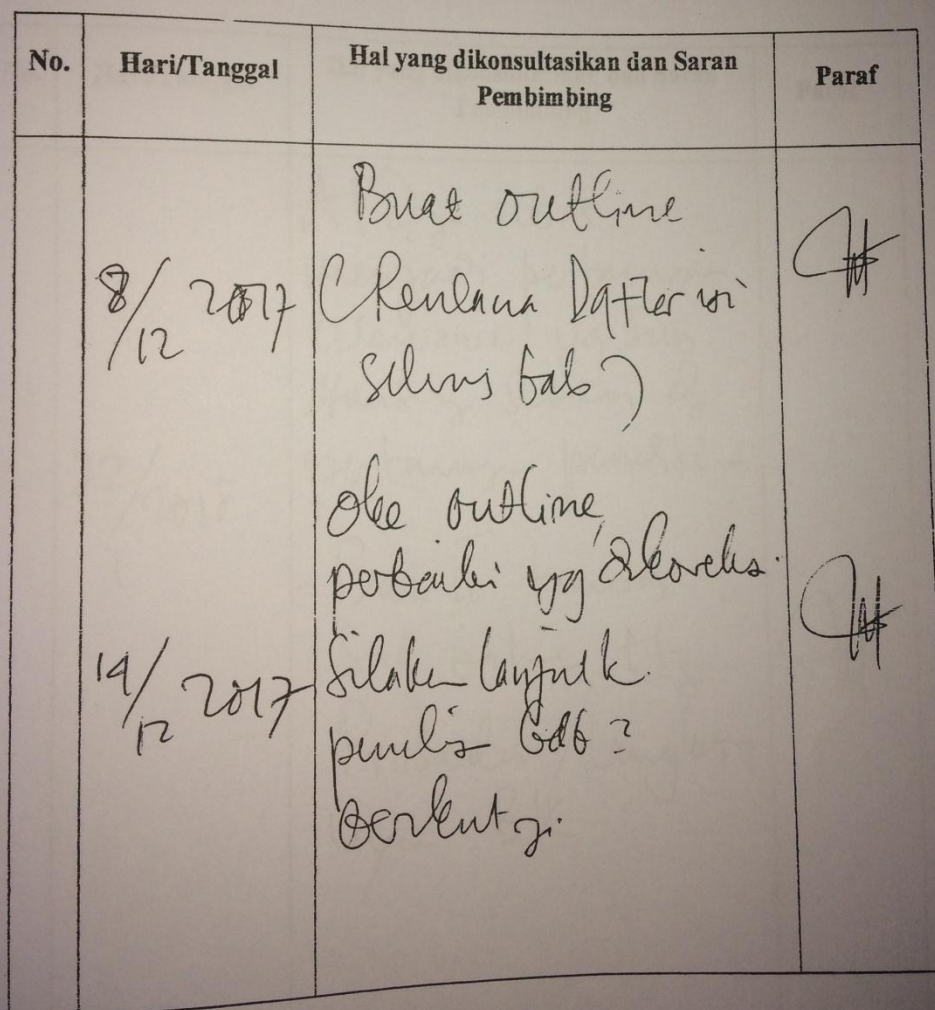 No.
Hari/Tanggal
Hal yang dikonsultasikan dan Saran
Pembimbing
Paraf
Buat outline
8/12 2017
(Rencana Daftar isi
seluruh bab)
oke outline,
perbaiki yg dikoreksi.
14/12 2017
Silakan lanjutk
penulis bab2
berikutnya.